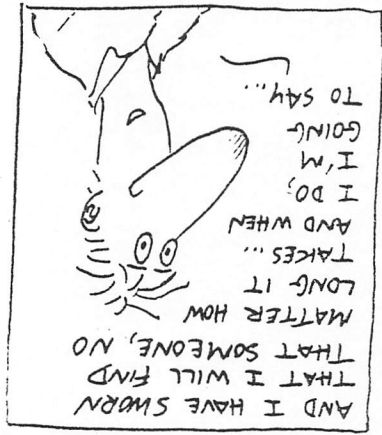 AND I HAVE SWORN
THAT I WILL FIND
THAT SOMEONE, NO
MATTER HOW
LONG IT
TAKES...
AND WHEN
I DO,
I'M
GOING
TO SAY...